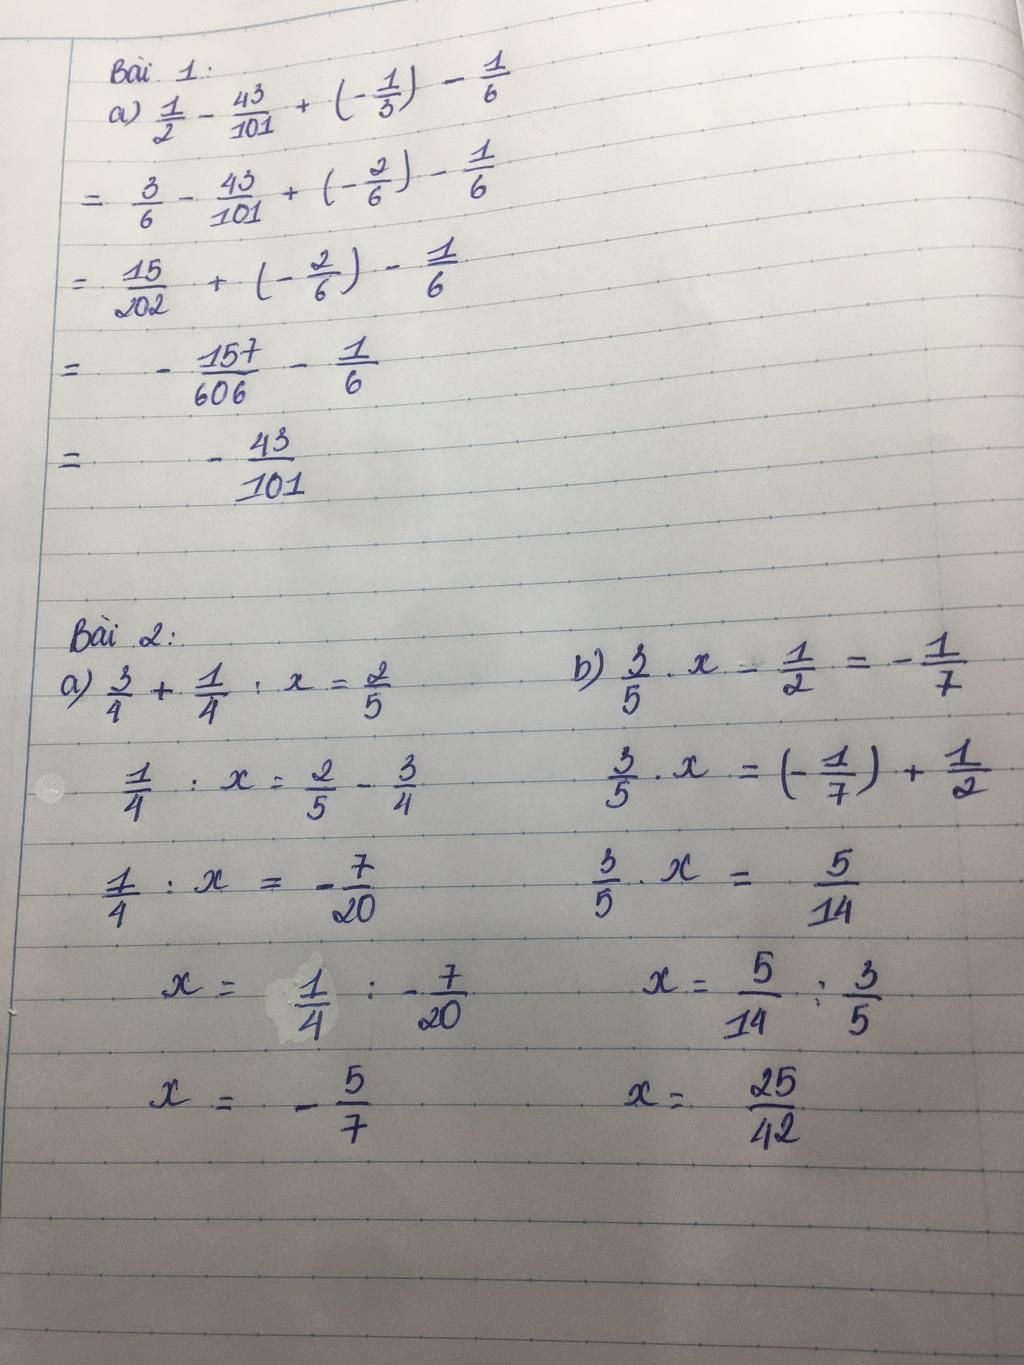 Bài 1:
a) 1/2 - 43/101 + (-1/3) - 1/6
= 3/6 - 43/101 + (-2/6) - 1/6
= 15/202 + (-2/6) - 1/6
= -157/606 - 1/6
= -43/101
Bài 2:
a) 3/4 + 1/4 : x = 2/5
1/4 : x = 2/5 - 3/4
1/4 : x = -7/20
x = 1/4 : -7/20
x = -5/7
b) 3/5 . x - 1/2 = -1/7
3/5 . x = (-1/7) + 1/2
3/5 . x = 5/14
x = 5/14 : 3/5
x = 25/42